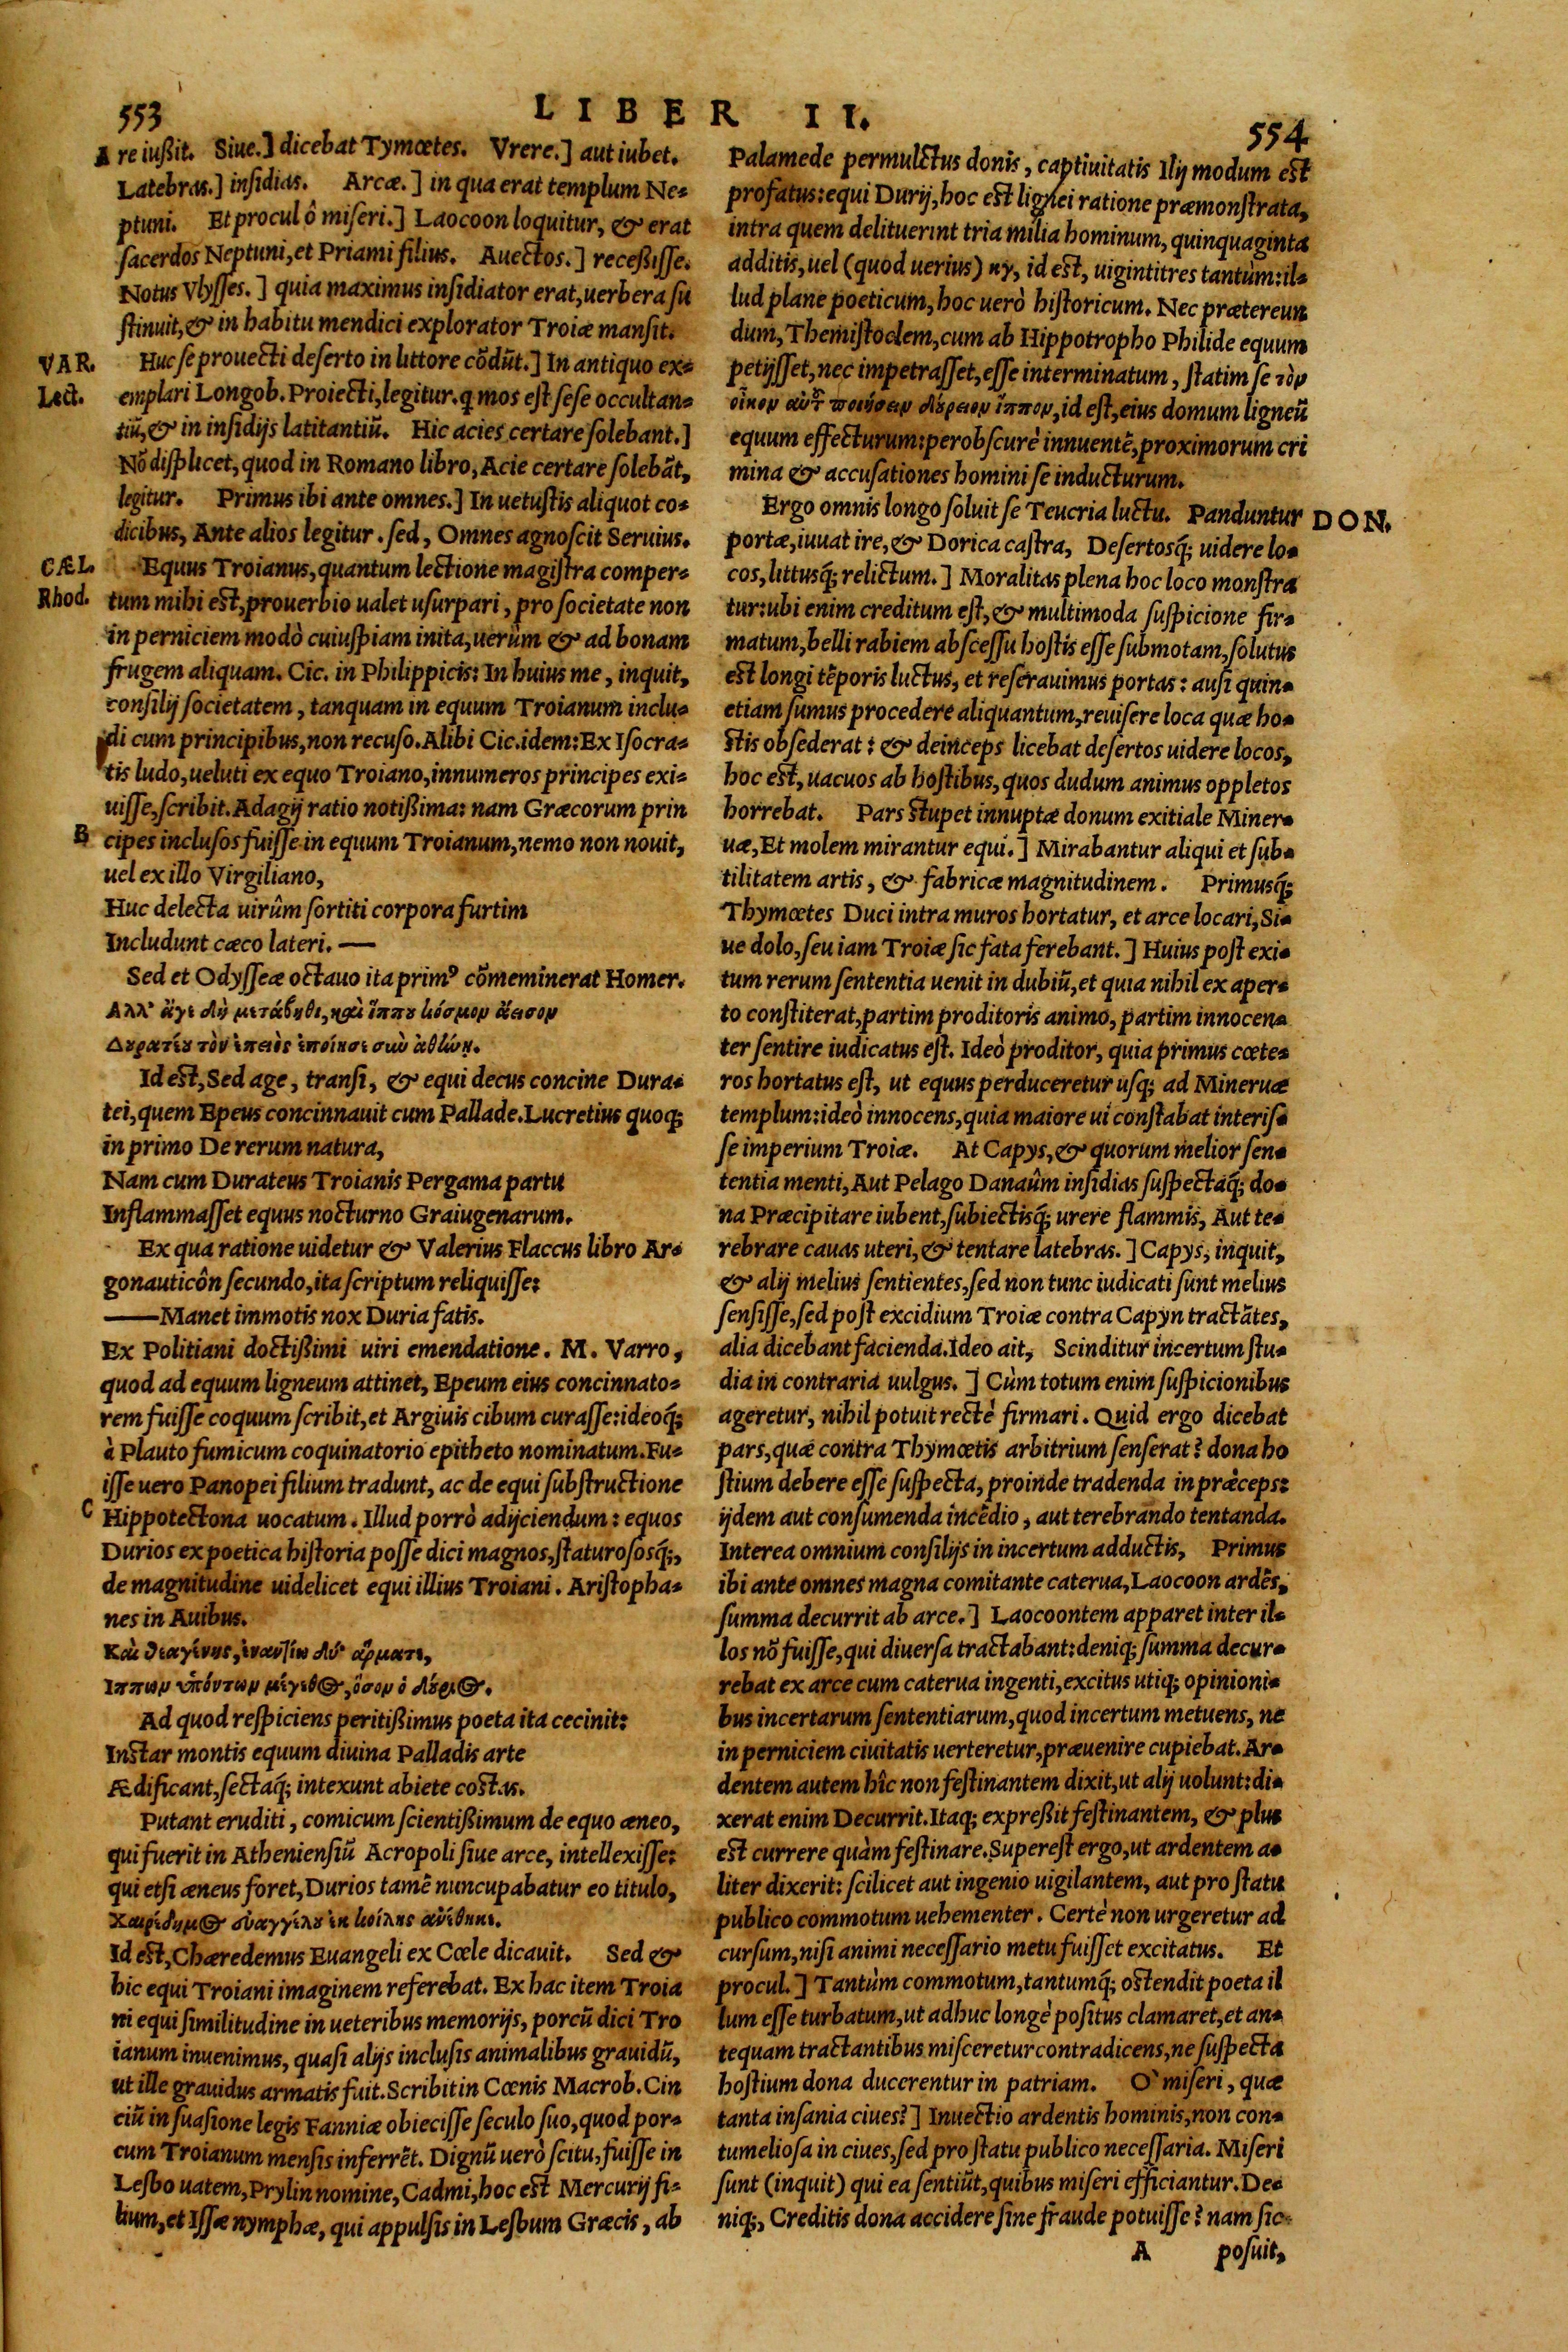 553 LIBER II. 554
A re iußit. Siue.] dicebat Tymœtes. Vrere.] aut iubet.
Latebras.] insidias. Arcæ.] in qua erat templum Ne-
ptuni. Et procul ô miseri.] Laocoon loquitur, & erat
ſacerdos Neptuni, et Priami filius. Auectos.] receßiſſe.
Notus Vlyſſes.] quia maximus inſidiator erat, uerbera ſu
ſtinuit, & in habitu mendici explorator Troiæ manſit.
VAR. Huc ſe prouecti deſerto in littore cõdũt.] In antiquo ex-
Lect. emplari Longob. Proiecti, legitur. q mos eſt ſeſe occultan-
tiũ, & in inſidijs latitantiũ. Hic acies certare ſolebant.]
Nõ diſplicet, quod in Romano libro, Acie certare ſolebãt,
legitur. Primus ibi ante omnes.] In uetuſtis aliquot co-
dicibus, Ante alios legitur. ſed, Omnes agnoſcit Seruius.
CÆL. Equus Troianus, quantum lectione magiſtra comper-
Rhod. tum mihi eſt, prouerbio ualet uſurpari, pro ſocietate non
in perniciem modò cuiuſpiam inita, uerùm & ad bonam
frugem aliquam. Cic. in Philippicis: In huius me, inquit,
conſilij ſocietatem, tanquam in equum Troianum inclu-
di cum principibus, non recuſo. Alibi Cic. idem: Ex Iſocra-
tis ludo, ueluti ex equo Troiano, innumeros principes exi-
uiſſe, ſcribit. Adagij ratio notißima: nam Græcorum prin
B cipes incluſos fuiſſe in equum Troianum, nemo non nouit,
uel ex illo Virgiliano,
Huc delecta uirûm ſortiti corpora furtim
Includunt cæco lateri. —
Sed et Odyſſeæ octauo ita primꝰ cõmeminerat Homer.
Αλλ' ἄγε δὴ μετάβηθι, καὶ ἵππου κόσμον ἄεισον
Δουρατέου τὸν ἐπειὸς ἐποίησε σιὼ ἀθλώη.
Id eſt, Sed age, tranſi, & equi decus concine Dura-
tei, quem Epeus concinnauit cum Pallade. Lucretius quoq;
in primo De rerum natura,
Nam cum Durateus Troianis Pergama partu
Inflammaſſet equus nocturno Graiugenarum.
Ex qua ratione uidetur & Valerius Flaccus libro Ar-
gonauticôn ſecundo, ita ſcriptum reliquiſſe:
— Manet immotis nox Duria fatis.
Ex Politiani doctißimi uiri emendatione. M. Varro,
quod ad equum ligneum attinet, Epeum eius concinnato-
rem fuiſſe coquum ſcribit, et Argiuis cibum curaſſe: ideoq́;
à Plauto fumicum coquinatorio epitheto nominatum. Fu-
iſſe uero Panopei filium tradunt, ac de equi ſubſtructione
C Hippotectona uocatum. Illud porrò adijciendum: equos
Durios ex poetica hiſtoria poſſe dici magnos, ſtaturoſosq́;,
de magnitudine uidelicet equi illius Troiani. Ariſtopha-
nes in Auibus.
Καὶ θεαγένης, ἐναντίω δύ' ἅρματι,
Ιππων ὑπόντων μέγεθος, ὅσον ὁ δούριος.
Ad quod reſpiciens peritißimus poeta ita cecinit:
Inſtar montis equum diuina Palladis arte
Ædificant, ſectaq́; intexunt abiete coſtas.
Putant eruditi, comicum ſcientißimum de equo æneo,
qui fuerit in Athenienſiũ Acropoli ſiue arce, intellexiſſe:
qui etſi æneus foret, Durios tamẽ nuncupabatur eo titulo,
Χαιρέδημος ευαγγέλου ἐκ κοίλης ανέθηκε.
Id eſt, Chæredemus Euangeli ex Cœle dicauit. Sed &
hic equi Troiani imaginem referebat. Ex hac item Troia
ni equi ſimilitudine in ueteribus memorijs, porcũ dici Tro
ianum inuenimus, quaſi alijs incluſis animalibus grauidũ,
ut ille grauidus armatis fuit. Scribit in Cœnis Macrob. Cin
ciũ in ſuaſione legis Fanniæ obieciſſe ſeculo ſuo, quod por-
cum Troianum menſis inferrẽt. Dignũ uerò ſcitu, fuiſſe in
Lesbo uatem, Prylin nomine, Cadmi, hoc eſt Mercurij fi-
lium, et Iſſæ nymphæ, qui appulſis in Lesbum Græcis, ab
Palamede permulctus donis, captiuitatis Ilij modum eſt
profatus: equi Durij, hoc eſt lignei ratione præmonſtrata,
intra quem delituerint tria milia hominum, quinquaginta
additis, uel (quod uerius) κγ, id eſt, uigintitres tantùm: il-
lud plane poeticum, hoc uerò hiſtoricum. Nec prætereun
dum, Themiſtoclem, cum ab Hippotropho Philide equum
petijſſet, nec impetraſſet, eſſe interminatum, ſtatim ſe τὸν
οἶκον αὐτοῦ ποιήσειν δούρειον ἵππον, id eſt, eius domum ligneũ
equum effecturum: perobſcurè innuentẽ, proximorum cri
mina & accuſationes homini ſe inducturum.
Ergo omnis longo ſoluit ſe Teucria luctu. Panduntur DON.
portæ, iuuat ire, & Dorica caſtra, Deſertosq́; uidere lo-
cos, littusq́; relictum.] Moralitas plena hoc loco monſtra
tur: ubi enim creditum eſt, & multimoda ſuſpicione fir-
matum, belli rabiem abſceſſu hoſtis eſſe ſubmotam, ſolutus
eſt longi tẽporis luctus, et reſerauimus portas: auſi quin-
etiam ſumus procedere aliquantum, reuiſere loca quæ ho-
ſtis obſederat: & deinceps licebat deſertos uidere locos,
hoc eſt, uacuos ab hoſtibus, quos dudum animus oppletos
horrebat. Pars ſtupet innuptæ donum exitiale Miner-
uæ, Et molem mirantur equi.] Mirabantur aliqui et ſub-
tilitatem artis, & fabricæ magnitudinem. Primusq́;
Thymœtes Duci intra muros hortatur, et arce locari, Si-
ue dolo, ſeu iam Troiæ ſic fata ferebant.] Huius poſt exi-
tum rerum ſententia uenit in dubiũ, et quia nihil ex aper-
to conſtiterat, partim proditoris animo, partim innocen-
ter ſentire iudicatus eſt. Ideò proditor, quia primus cœte-
ros hortatus eſt, ut equus perduceretur uſq; ad Mineruæ
templum: ideò innocens, quia maiore ui conſtabat interiſ-
ſe imperium Troiæ. At Capys, & quorum melior ſen-
tentia menti, Aut Pelago Danaûm inſidias ſuſpectaq́; do-
na Præcipitare iubent, ſubiectisq́; urere flammis, Aut te-
rebrare cauas uteri, & tentare latebras.] Capys, inquit,
& alij melius ſentientes, ſed non tunc iudicati ſunt melius
ſenſiſſe, ſed poſt excidium Troiæ contra Capyn tractãtes,
alia dicebant facienda. Ideo ait, Scinditur incertum ſtu-
dia in contraria uulgus.] Cùm totum enim ſuſpicionibus
ageretur, nihil potuit rectè firmari. Quid ergo dicebat
pars, quæ contra Thymœtis arbitrium ſenſerat? dona ho
ſtium debere eſſe ſuſpecta, proinde tradenda in præceps:
ijdem aut conſumenda incẽdio, aut terebrando tentanda.
Interea omnium conſilijs in incertum adductis, Primus
ibi ante omnes magna comitante caterua, Laocoon ardẽs,
ſumma decurrit ab arce.] Laocoontem apparet inter il-
los nõ fuiſſe, qui diuerſa tractabant: deniq; ſumma decur-
rebat ex arce cum caterua ingenti, excitus utiq; opinioni-
bus incertarum ſententiarum, quod incertum metuens, ne
in perniciem ciuitatis uerteretur, præuenire cupiebat. Ar-
dentem autem hîc non feſtinantem dixit, ut alij uolunt: di-
xerat enim Decurrit. Itaq; expreßit feſtinantem, & plus
eſt currere quàm feſtinare. Supereſt ergo, ut ardentem a-
liter dixerit: ſcilicet aut ingenio uigilantem, aut pro ſtatu
publico commotum uehementer. Certè non urgeretur ad
curſum, niſi animi neceſſario metu fuiſſet excitatus. Et
procul.] Tantùm commotum, tantumq́; oſtendit poeta il
lum eſſe turbatum, ut adhuc longè poſitus clamaret, et an-
tequam tractantibus miſceretur contradicens, ne ſuſpecta
hoſtium dona ducerentur in patriam. O` miſeri, quæ
tanta inſania ciues?] Inuectio ardentis hominis, non con-
tumelioſa in ciues, ſed pro ſtatu publico neceſſaria. Miſeri
ſunt (inquit) qui ea ſentiũt, quibus miſeri efficiantur. De-
niq;, Creditis dona accidere ſine fraude potuiſſe? nam ſic
A poſuit,